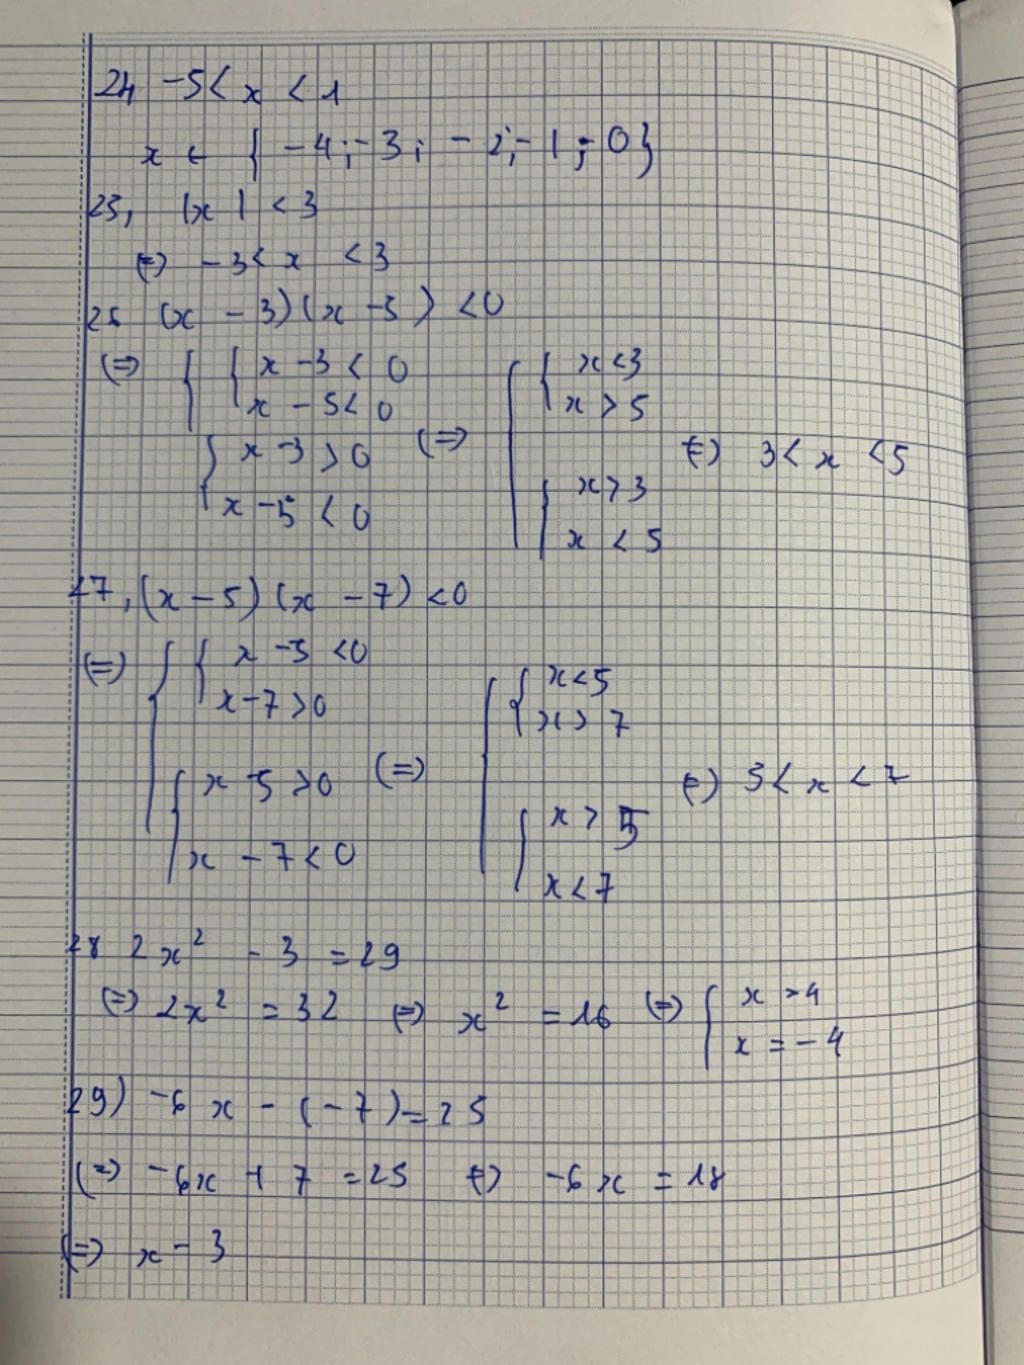 24 -5 < x < 1
x ∈ { -4 ; -3 ; -2 ; -1 ; 0 }
25, |x| < 3
(=) -3 < x < 3
26 (x - 3)(x - 5) < 0
(=) { { x - 3 < 0 [ { x < 3
x - 5 < 0 x > 5
{ x - 3 > 0 (=) (=) 3 < x < 5
x - 5 < 0 { x > 3
x < 5
27, (x - 5)(x - 7) < 0
(=) { { x - 5 < 0 [ { x < 5
x - 7 > 0 x > 7
{ x - 5 > 0 (=) (=) 5 < x < 7
x - 7 < 0 { x > 5
x < 7
28 2x² - 3 = 29
(=) 2x² = 32 (=) x² = 16 (=) [ x = 4
x = -4
29) -6x - (-7) = 25
(=) -6x + 7 = 25 (=) -6x = 18
(=) x - 3